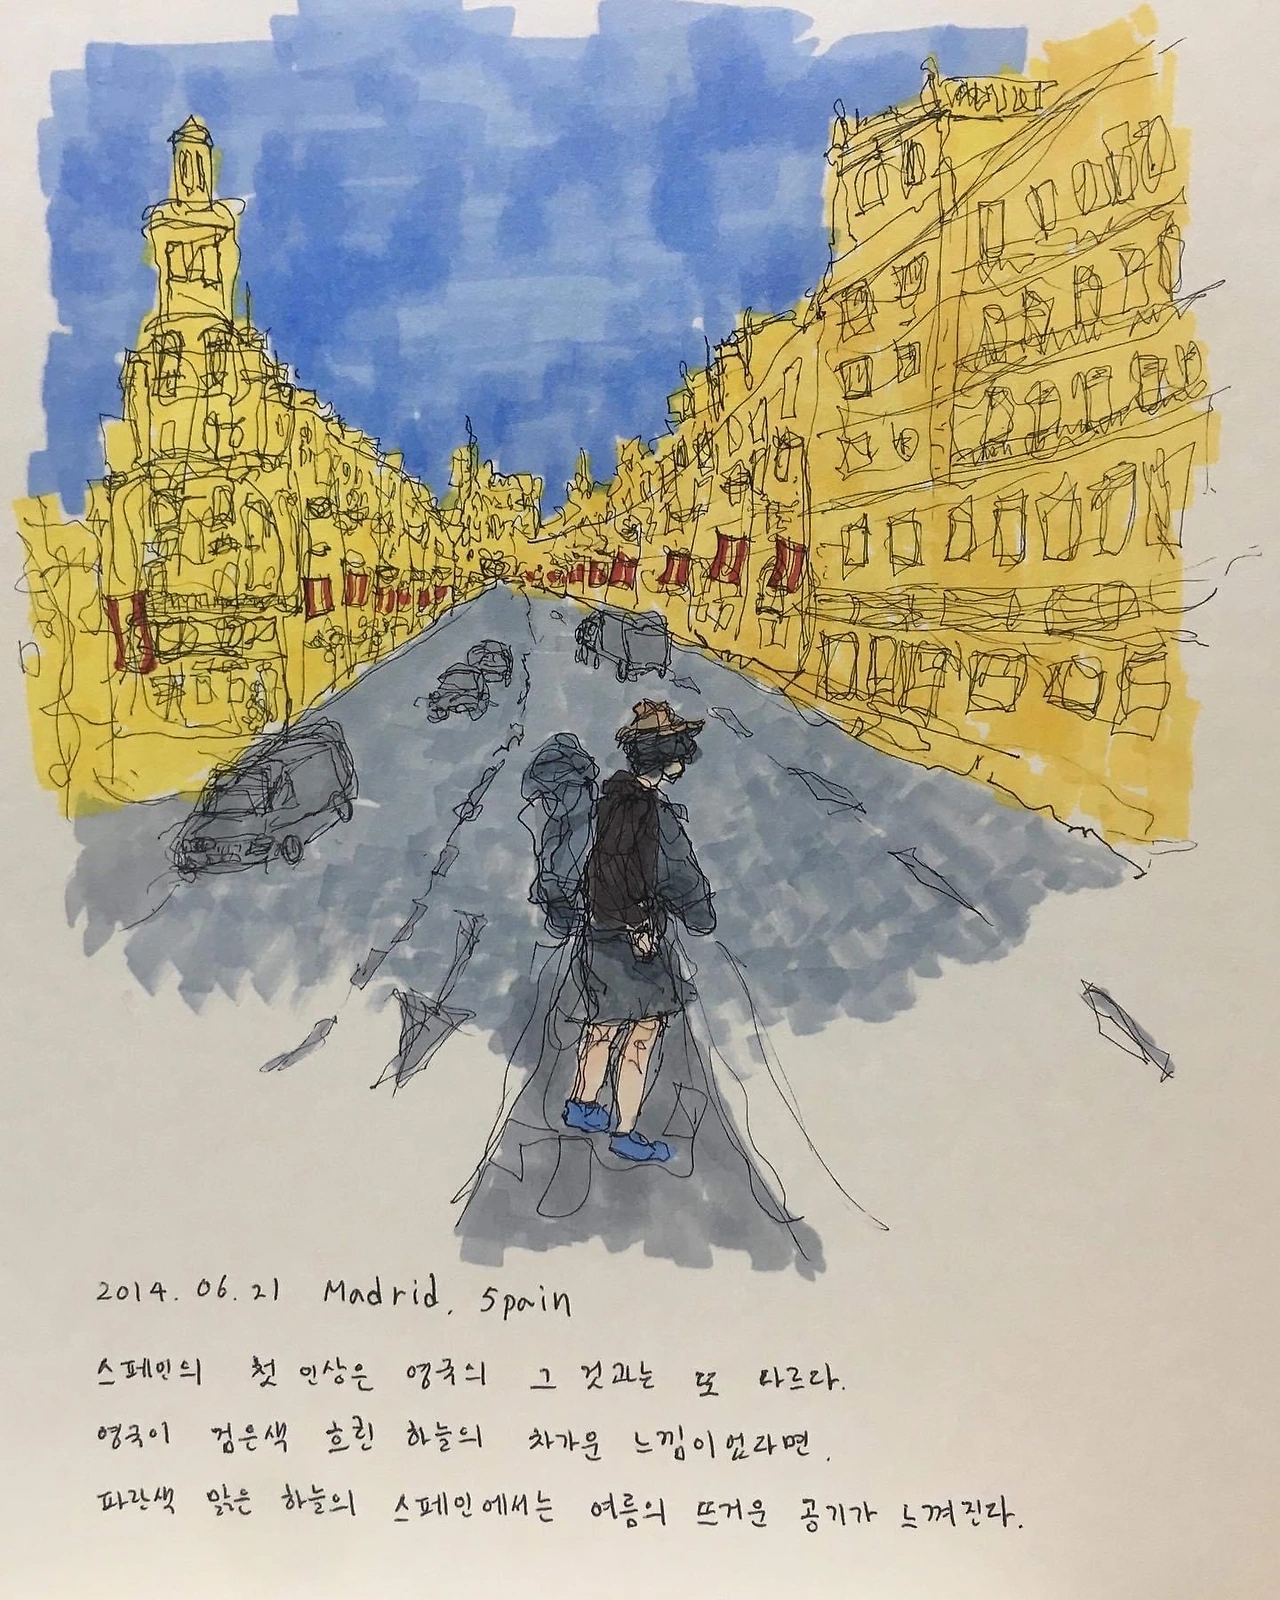 2014. 06. 21 Madrid, Spain
스페인의 첫 인상은 영국의 그 것과는 또 다르다.
영국이 검은색 흐린 하늘의 차가운 느낌이었다면,
파란색 맑은 하늘의 스페인에서는 여름의 뜨거운 공기가 느껴진다.